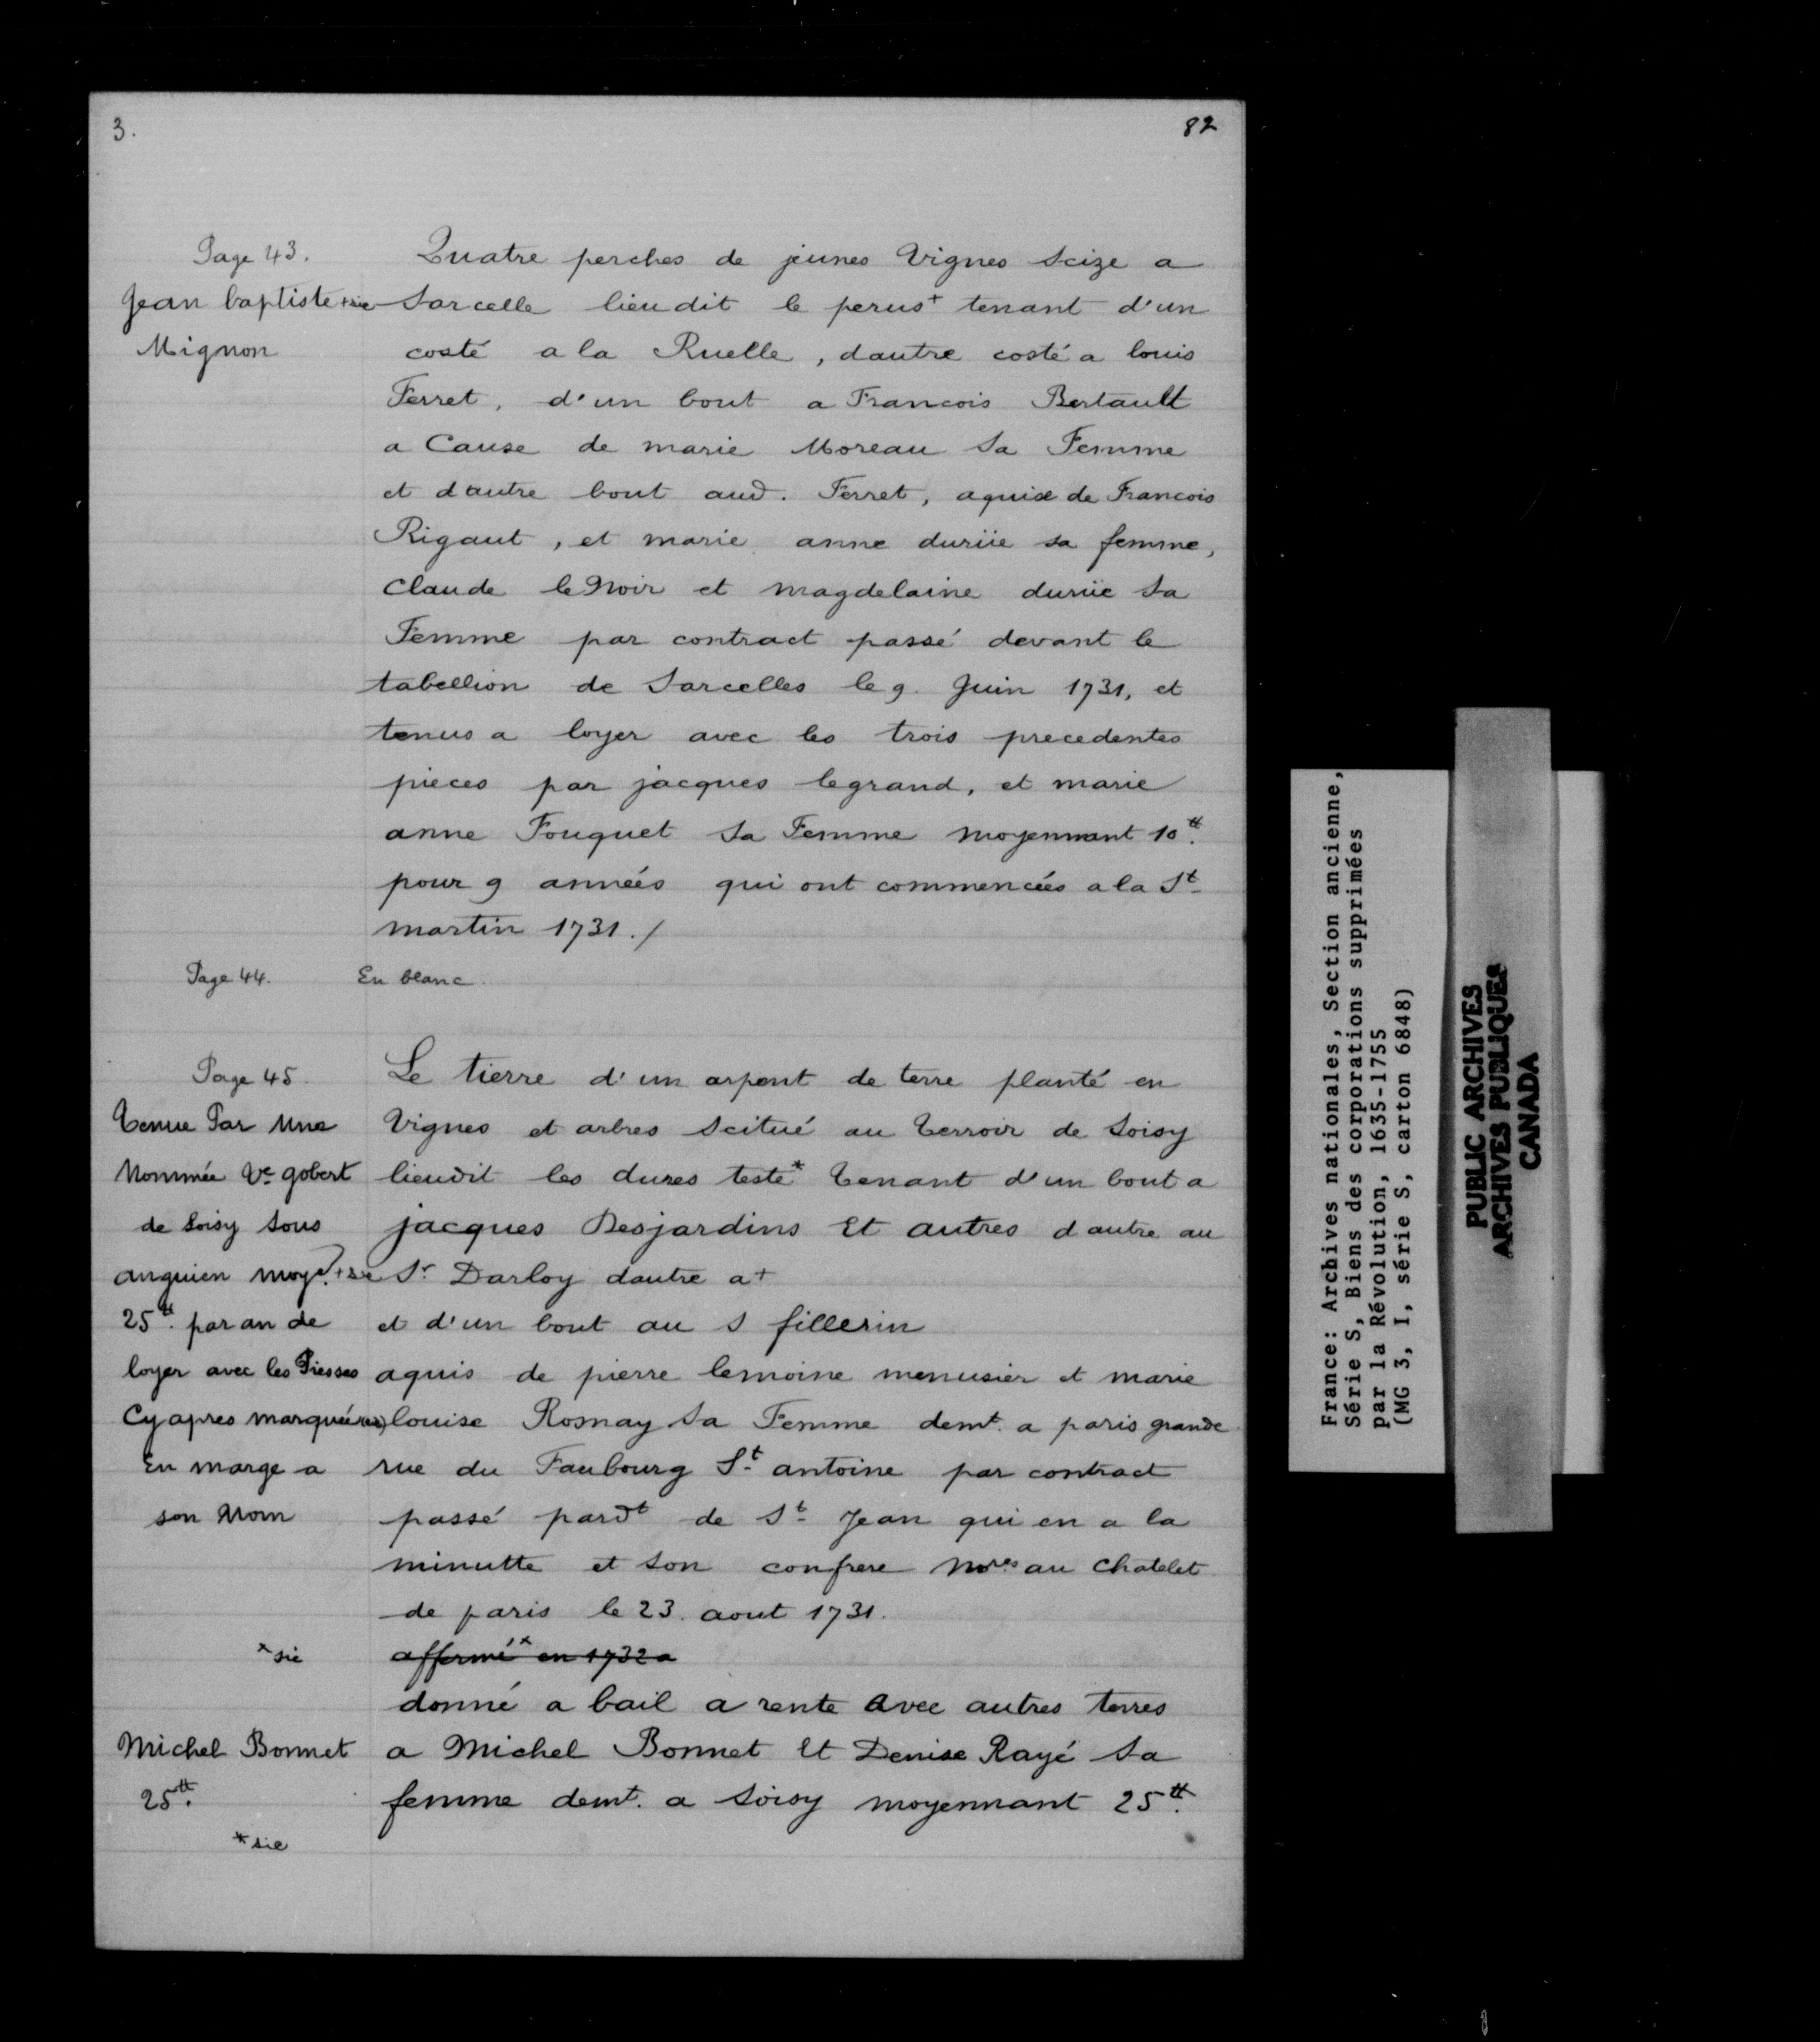 3.
82
Page 43.
Jean baptiste +sic
Mignon
Quatre perches de jeunes Vignes Scize a
Sarcelle lieu dit le perus+ tenant d'un
costé a la Ruelle, dautre costé a louis
Ferret, d'un bout a Francois Bertault
a Cause de marie Moreau Sa Femme
et dautre bout aud. Ferret, aquise de Francois
Rigaut, et marie anne duriie sa femme,
Claude le Noir et magdelaine duriie Sa
Femme par contract passé devant le
tabellion de Sarcelles le 9. Juin 1731, et
tenus a loyer avec les trois precedentes
pieces par jacques legrand, et marie
anne Fouquet Sa Femme moyennant 10tt.
pour 9 années qui ont commencées a la St
martin 1731./
Page 44. En blanc.
Page 45.
Tenue Par Une
Nommée Ve gobert
de Soisy sous
anguien moyt. +sic
25tt. par an de
loyer avec les Piesses
Cy apres marquée
En marge a
son Nom
Le tierre d'un arpent de terre planté en
Vignes et arbres Scitué au Terroir de Soisy
lieudit les dures teste* Tenant d'un bout a
jacques Desjardins Et autres dautre au
Sr Darloy dautre a+
et d'un bout au S fillerin
aquis de pierre lemoine menusier et marie
louise Rosnay Sa Femme demt. a paris grande
rue du Faubourg St antoine par contract
passé pardt de St Jean qui en a la
minutte et son confrere Nores au Chatelet
de paris le 23. aout 1731.
*sic affermé* en 1732 a
donné a bail a rente avec autres terres
Michel Bonnet
25tt.
a Michel Bonnet Et Denise Rayé Sa
femme demt. a Soisy moyennant 25tt.
*sic
France: Archives nationales, Section ancienne,
Série S, Biens des corporations supprimées
par la Révolution, 1635-1755
(MG 3, I, série S, carton 6848)
PUBLIC ARCHIVES
ARCHIVES PUBLIQUES
CANADA